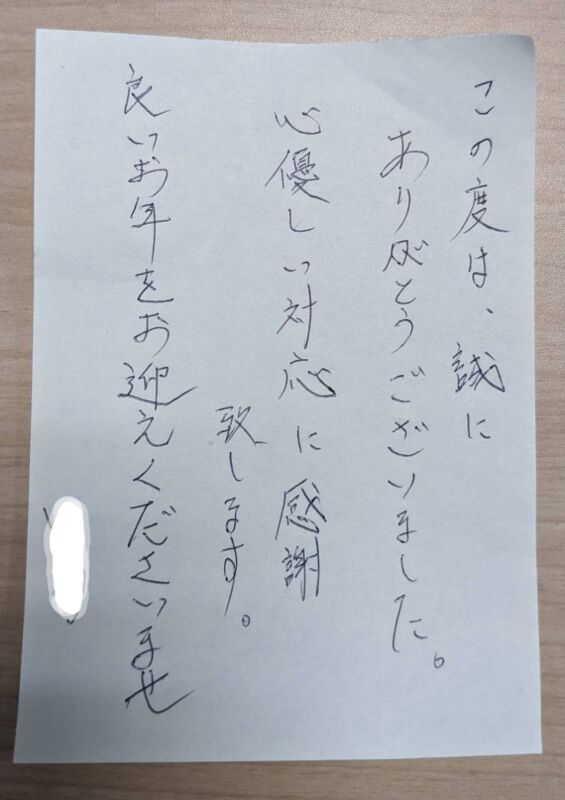 この度は、誠に
ありがとうございました。
心優しい対応に感謝
致します。
良いお年をお迎えくださいませ